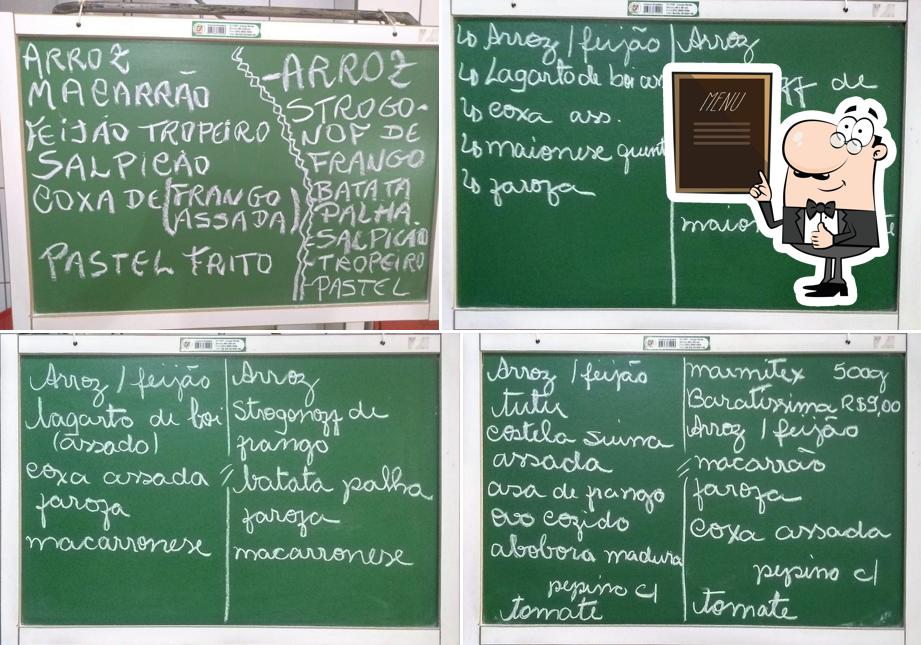 ARROZ
MACARRÃO
FEIJÃO TROPEIRO
SALPICÃO
COXA DE (FRANGO
ASSADA)
PASTEL FRITO
-ARROZ
STROGO-
NOF DE
FRANGO
BATATA
PALHA.
-SALPICÃO
-TROPEIRO
-PASTEL
↳ Arroz / feijão
↳ Lagarto de boi as
↳ coxa ass.
↳ maionese
↳ farofa
Arroz
ff de
maion
MENU
Arroz / feijão
lagarto de boi
(assado)
coxa assada
farofa
macarronese
Arroz
Strogonoff de
frango
batata palha
farofa
macarronese
Arroz / feijão
tutu
costela suina
assada
asa de frango
ovo cozido
abobora madura
pepino c/
tomate
marmitex 500g
Baratíssima R$9,00
Arroz / feijão
macarrão
farofa
coxa assada
pepino c/
tomate